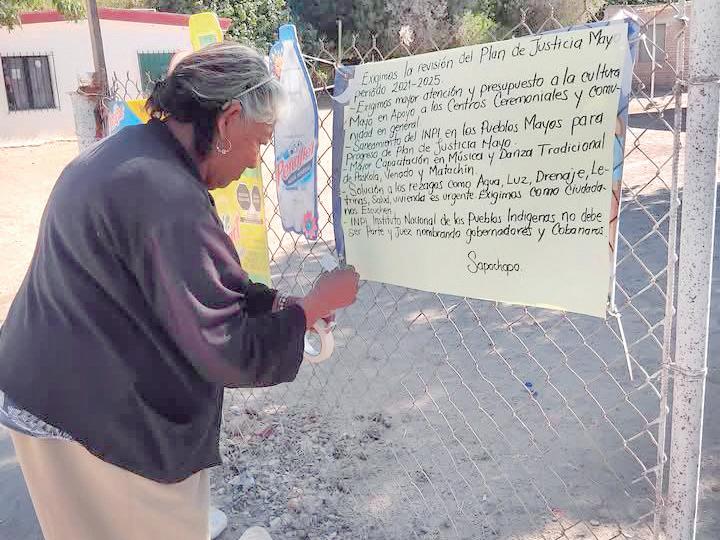 - Exigimos la revisión del Plan de Justicia May
periodo 2021-2025.
- Exigimos mayor atención y presupuesto a la cultura
Mayo en Apoyo a los Centros Ceremoniales y comu-
nidad en general
- Saneamiento del INPI en los Pueblos Mayos para
progreso de Plan de Justicia Mayo.
- Mayor Capacitación en Música y Danza Tradicional
de Paskola, Venado y Matachin
- Solución a los rezagos como Agua, Luz, Drenaje, Le-
trinas, Salud, vivienda es urgente Exigimos como ciudada-
nos Escuchen.
- INPI Instituto Nacional de los Pueblos Indigenas no debe
ser Parte y Juez nombrando gobernadores y Cobanaros
Sapochopo.